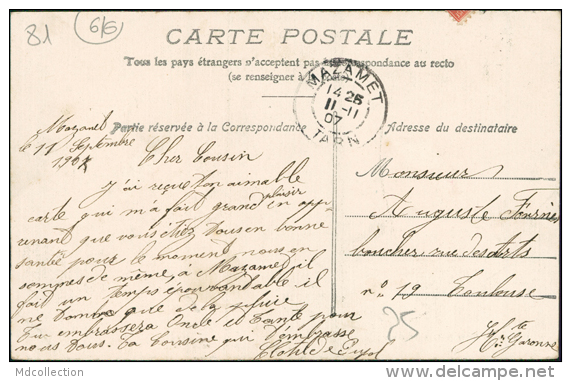 81
6/6
CARTE POSTALE
Tous les pays étrangers n'acceptent pas la correspondance au recto
(se renseigner à la poste)
MAZAMET
14 25
11 -11
07
TARN
Partie réservée à la Correspondance
Adresse du destinataire
Mazamet
le 11 Septembre
1907
Cher Cousin
J'ai reçue ton aimable
carte qui m'a fait grand plaisir en app
renant que vous étiez tous en bonne
santé pour le moment nous en
sommes de même, à Mazamet il
fait un temps épouvantable il
ne tombe que de la pluie
Tu embrassera Oncle et Tante pour
nous tous. Ta Cousine qui t'embrasse
Clotilde Pujol
Monsieur
Auguste Fournier
boucher rue des Arts
n° 19 Toulouse
Hte Garonne
25
Mdcollection
www.delcampe.net